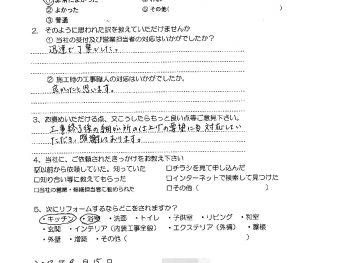 ② よかった　⑤ その他(
③ 普通
2. そのように思われた訳を教えていただけますか
① 当社の受付及び営業担当者の対応はいかがでしたか？
迅速で丁寧でした。
② 施工時の工事職人の対応はいかがでしたか。
良かったと思います。
3、お褒めいただける点、又こうしたらもっと良い点等ご意見下さい。
工事終了後の細かい所の仕上げの要望にも対応してい
ただき、感謝しております。
4、当社に、ご依頼されたきっかけをお教え下さい
☑以前から依頼していた、知っていた　□チラシを見て申し込んだ
□知り合い等に教えてもらった　□インターネットで検索して見つけた
□当社の営業・ 担当者に勧められた　□その他(　)
5、次にリフォームするならどこをされますか？
・キッチン ・浴室 ・洗面 ・トイレ ・子供室 ・リビング ・和室
・玄関 ・インテリア（内装工事全般） ・エクステリア（外構） ・屋根
・外壁 ・増築 ・その他（　）